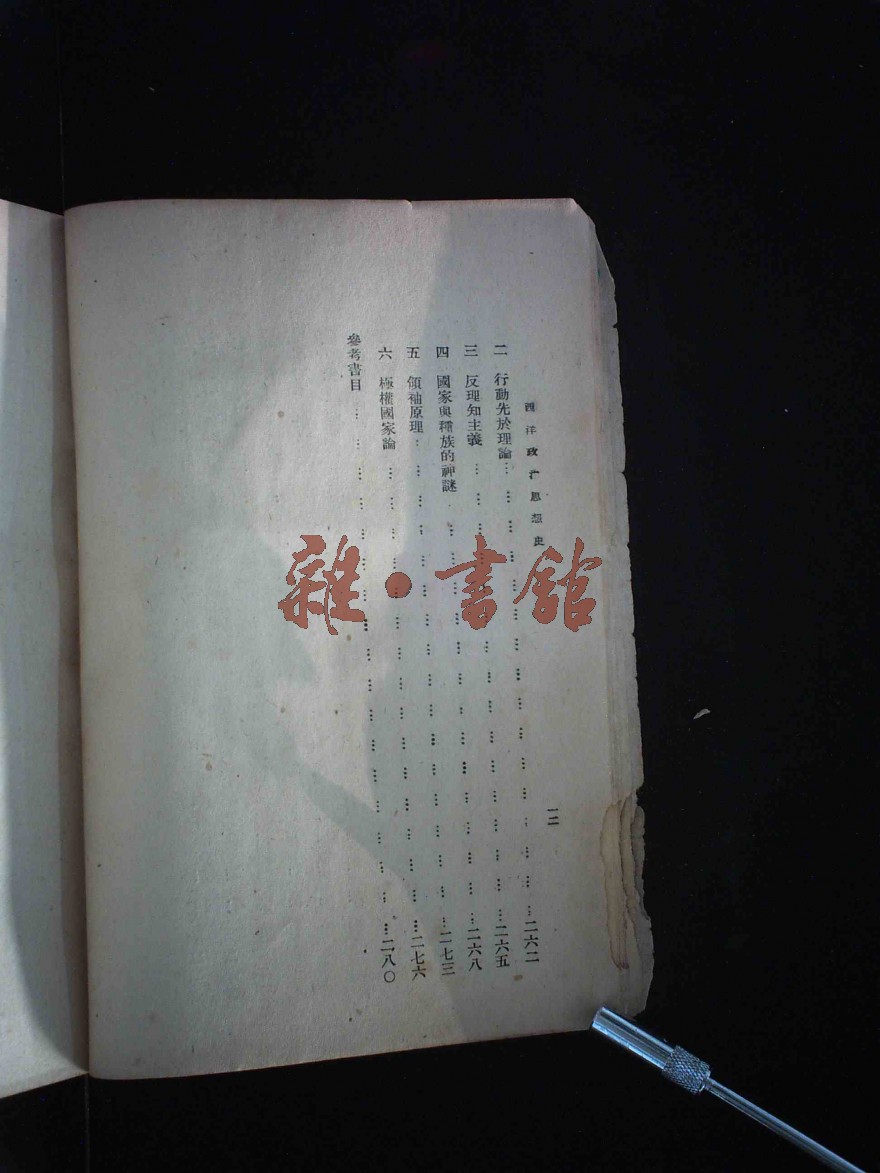 西洋政治思想史 一二
二 行動先於理論……二六二
三 反理知主義……二六五
四 國家與種族的神謎……二六八
五 領袖原理……二七三
六 極權國家論……二七六
參考書目……二八〇
雜·書館